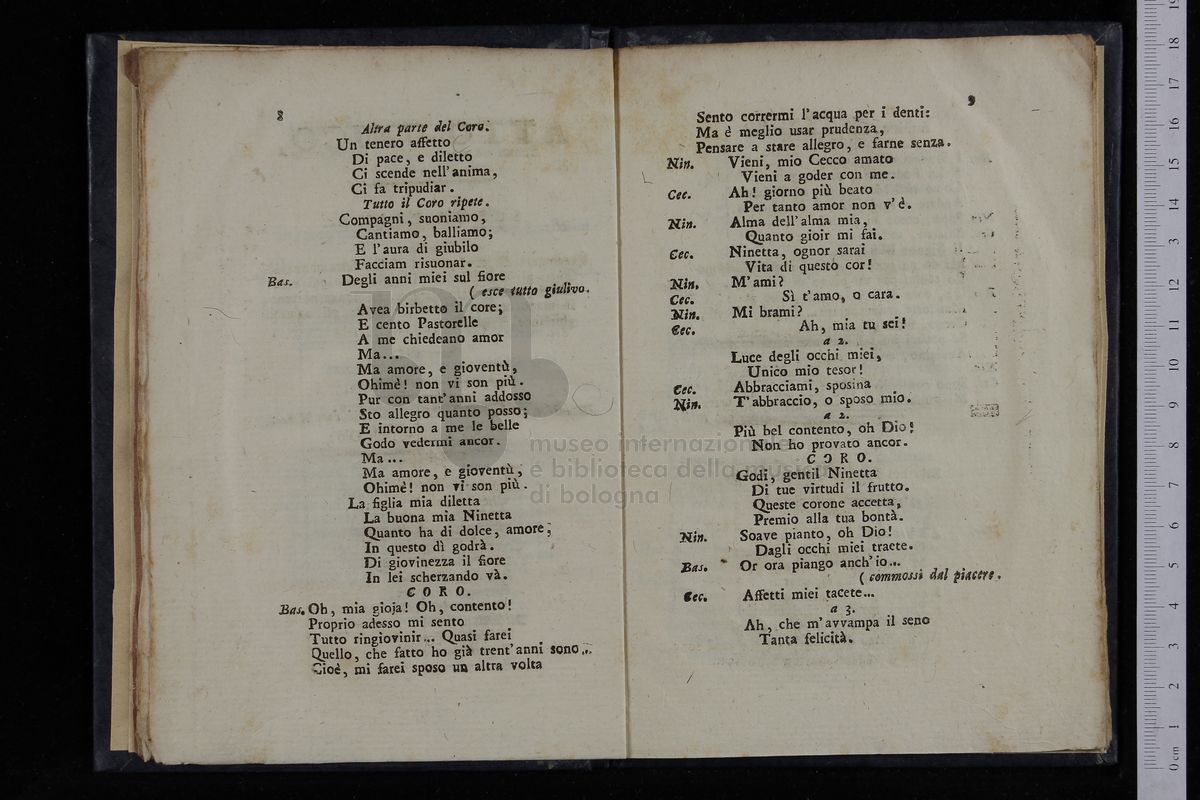 8
Altra parte del Coro.
Un tenero affetto
Di pace, e diletto
Ci scende nell'anima,
Ci fa tripudiar.
Tutto il Coro ripete.
Compagni, suoniamo,
Cantiamo, balliamo;
E l'aura di giubilo
Facciam risuonar.
Bas. Degli anni miei sul fiore
( esce tutto giulivo.
Avea birbetto il core;
E cento Pastorelle
A me chiedeano amor
Ma...
Ma amore, e gioventù,
Ohimè! non vi son più.
Pur con tant'anni addosso
Sto allegro quanto posso;
E intorno a me le belle
Godo vedermi ancor.
Ma...
Ma amore, e gioventù,
Ohimè! non vi son più.
La figlia mia diletta
La buona mia Ninetta
Quanto ha di dolce, amore,
In questo dì godrà.
Di giovinezza il fiore
In lei scherzando và.
CORO.
Bas. Oh, mia gioja! Oh, contento!
Proprio adesso mi sento
Tutto ringiovinir... Quasi farei
Quello, che fatto ho già trent'anni sono...
Cioè, mi farei sposo un altra volta
9
Sento corrermi l'acqua per i denti:
Ma è meglio usar prudenza,
Pensare a stare allegro, e farne senza.
Nin. Vieni, mio Cecco amato
Vieni a goder con me.
Cec. Ah! giorno più beato
Per tanto amor non v'è.
Nin. Alma dell'alma mia,
Quanto gioir mi fai.
Cec. Ninetta, ognor sarai
Vita di questo cor!
Nin. M'ami?
Cec. Sì t'amo, o cara.
Nin. Mi brami?
Cec. Ah, mia tu sei!
a 2.
Luce degli occhi miei,
Unico mio tesor!
Cec. Abbracciami, sposina
Nin. T'abbraccio, o sposo mio.
a 2.
Più bel contento, oh Dio!
Non ho provato ancor.
CORO.
Godi, gentil Ninetta
Di tue virtudi il frutto.
Queste corone accetta,
Premio alla tua bontà.
Nin. Soave pianto, oh Dio!
Dagli occhi miei traete.
Bas. Or ora piango anch'io...
( commossi dal piacere.
Cec. Affetti miei tacete...
a 3.
Ah, che m'avvampa il seno
Tanta felicità.
museo internazionale
e biblioteca della musica
di bologna
0 cm 1 2 3 4 5 6 7 8 9 10 11 12 13 14 15 16 17 18 19